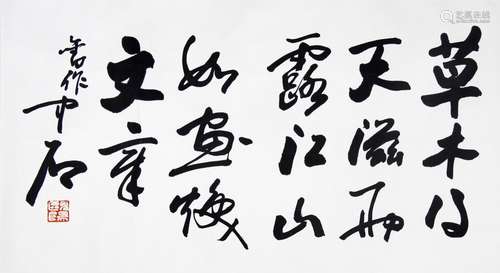 草木得
天滋雨
露江山
如画焕
文章
作中石